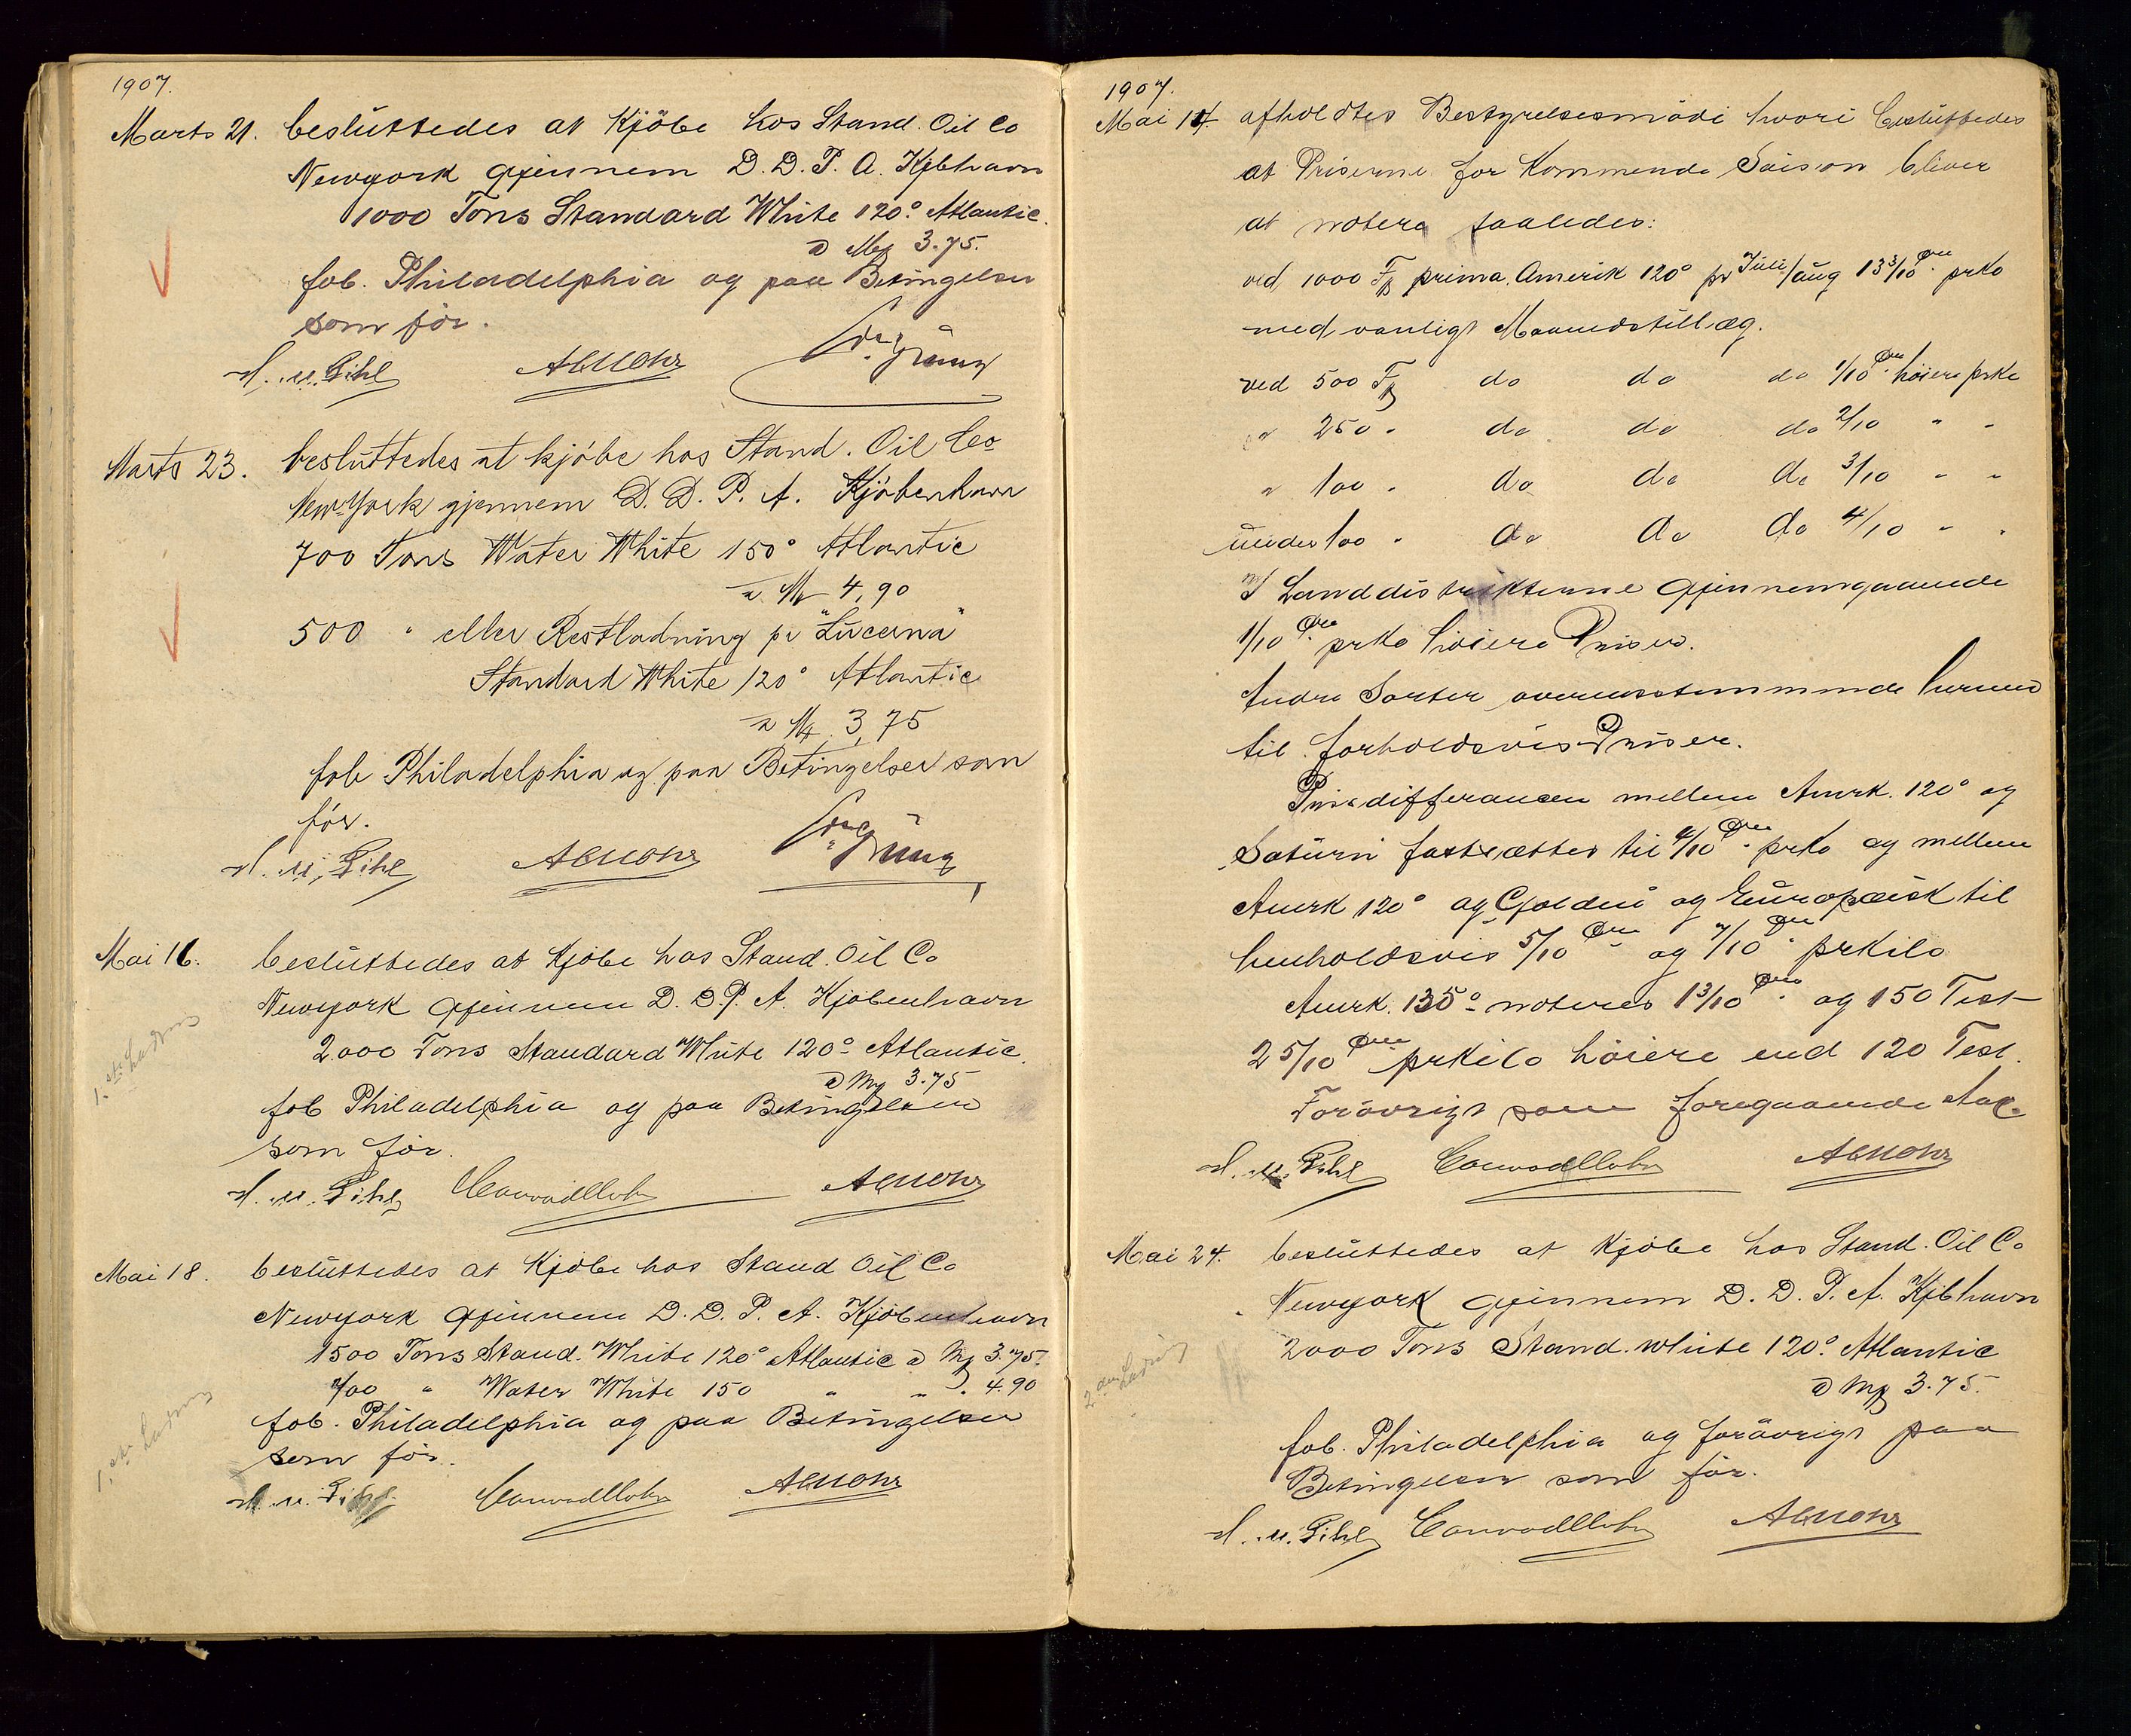 1907.
Marts 21. besluttedes at Kjöbe hos Stand. Oil Co
Newyork gjennem D. D. P. A. Kjbhavn
1000 Tons Standard White 120° Atlantic.
a Mk 3.75.
fob. Philadelphia og paa Betingelser
som för.
Marts 23. besluttedes at kjöbe hos Stand. Oil Co
New-York gjennem D. D. P. A. Kjöbenhavn
700 Tons Water White 150° Atlantic
a Mk 4,90
500 " eller Restladning pr "Lucerna"
Standard White 120° Atlantic
a Mk 3,75
fob Philadelphia og paa Betingelser som
för.
Mai 16. besluttedes at Kjöbe hos Stand. Oil Co
Newyork gjennem D. D. P. A. Kjöbenhavn
1.ste Ladning
2000 Tons Standard White 120° Atlantic.
a Mk 3.75
fob Philadelphia og paa Betingelser
som för.
Mai 18. besluttedes at Kjöbe hos Stand Oil Co
Newyork gjennem D. D. P. A. Kjöbenhavn
1500 Tons Stand. White 120° Atlantic a Mk 3.75.
700 " Water White 150 " " " 4.90
1.ste Ladning
fob. Philadelphia og paa Betingelser
som för.
1907.
Mai 14. afholdtes Bestyrelsesmöde hvori besluttedes
at Priserne for Kommende Saison bliver
at notere saaledes:
ved 1000 Fp prima Amerik 120° pr Juli/aug 13 3/10 Öre prko
med vanligt Maanedstillæg.
ved 500 Fp do do do 1/10 Öre höiere prko
" 250 " do do do 2/10 " "
" 100 " do do do 3/10 " "
under 100 " do do do 4/10 " "
I Landdistrikterne gjennemgaaende
1/10 Öre prko höiere Priser.
Andre Sorter overensstemmende hermed
til forholdsvis Priser.
Prisdifferancen mellem Amrk. 120° og
Saturn fastsættes til 4/10 Öre prko og mellem
Amrk 120° og Golden og Europæisk til
henholdsvis 5/10 Öre og 7/10 Öre prkilo
Amrk. 135° noteres 1 3/10 Öre og 150 Test
2 5/10 Öre prkilo höiere end 120 Test.
Forövrigt som foregaaende Aar.
Mai 24. besluttedes at Kjöbe hos Stand. Oil Co
Newyork gjennem D. D. P. A. Kjbhavn
2000 Tons Stand. White 120° Atlantic
2den Ladning
a Mk 3.75.
fob. Philadelphia og forövrigt paa
Betingelser som för.